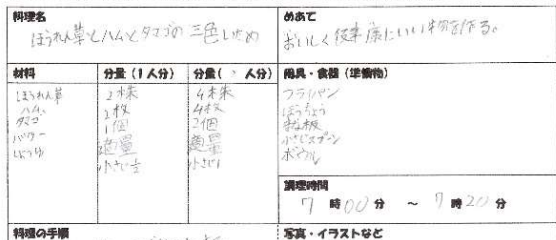 料理名
ほうれん草とハムとタマゴの三色いため
めあて
おいしく健康にいい物を作る。
材料 分量(1人分) 分量( 人分)
ほうれん草 2株 4株
ハム 2枚 4枚
タマゴ 1個 2個
バター 適量 適量
しょうゆ 小さじ½ 小さじ1
用具・食器(準備物)
フライパン
ほうちょう
まな板
小さじスプーン
ボウル
調理時間
7時00分 ~ 7時20分
料理の手順
写真・イラストなど